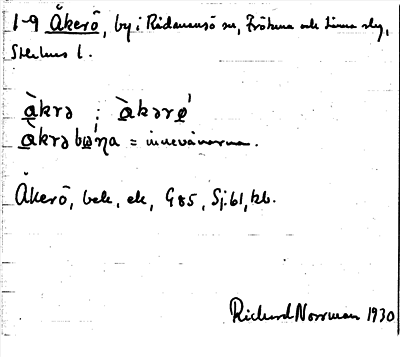 1-9 Åkerö, by i Ridmansö sn, Fröhuna och Länna slg,
Sthlms l.
àkrə : àkərø'
àkrəbω'ηa = innevånarna.
Åkerö, bek, ek, G85, Sj.61, kb.
Richard Norrman 1930